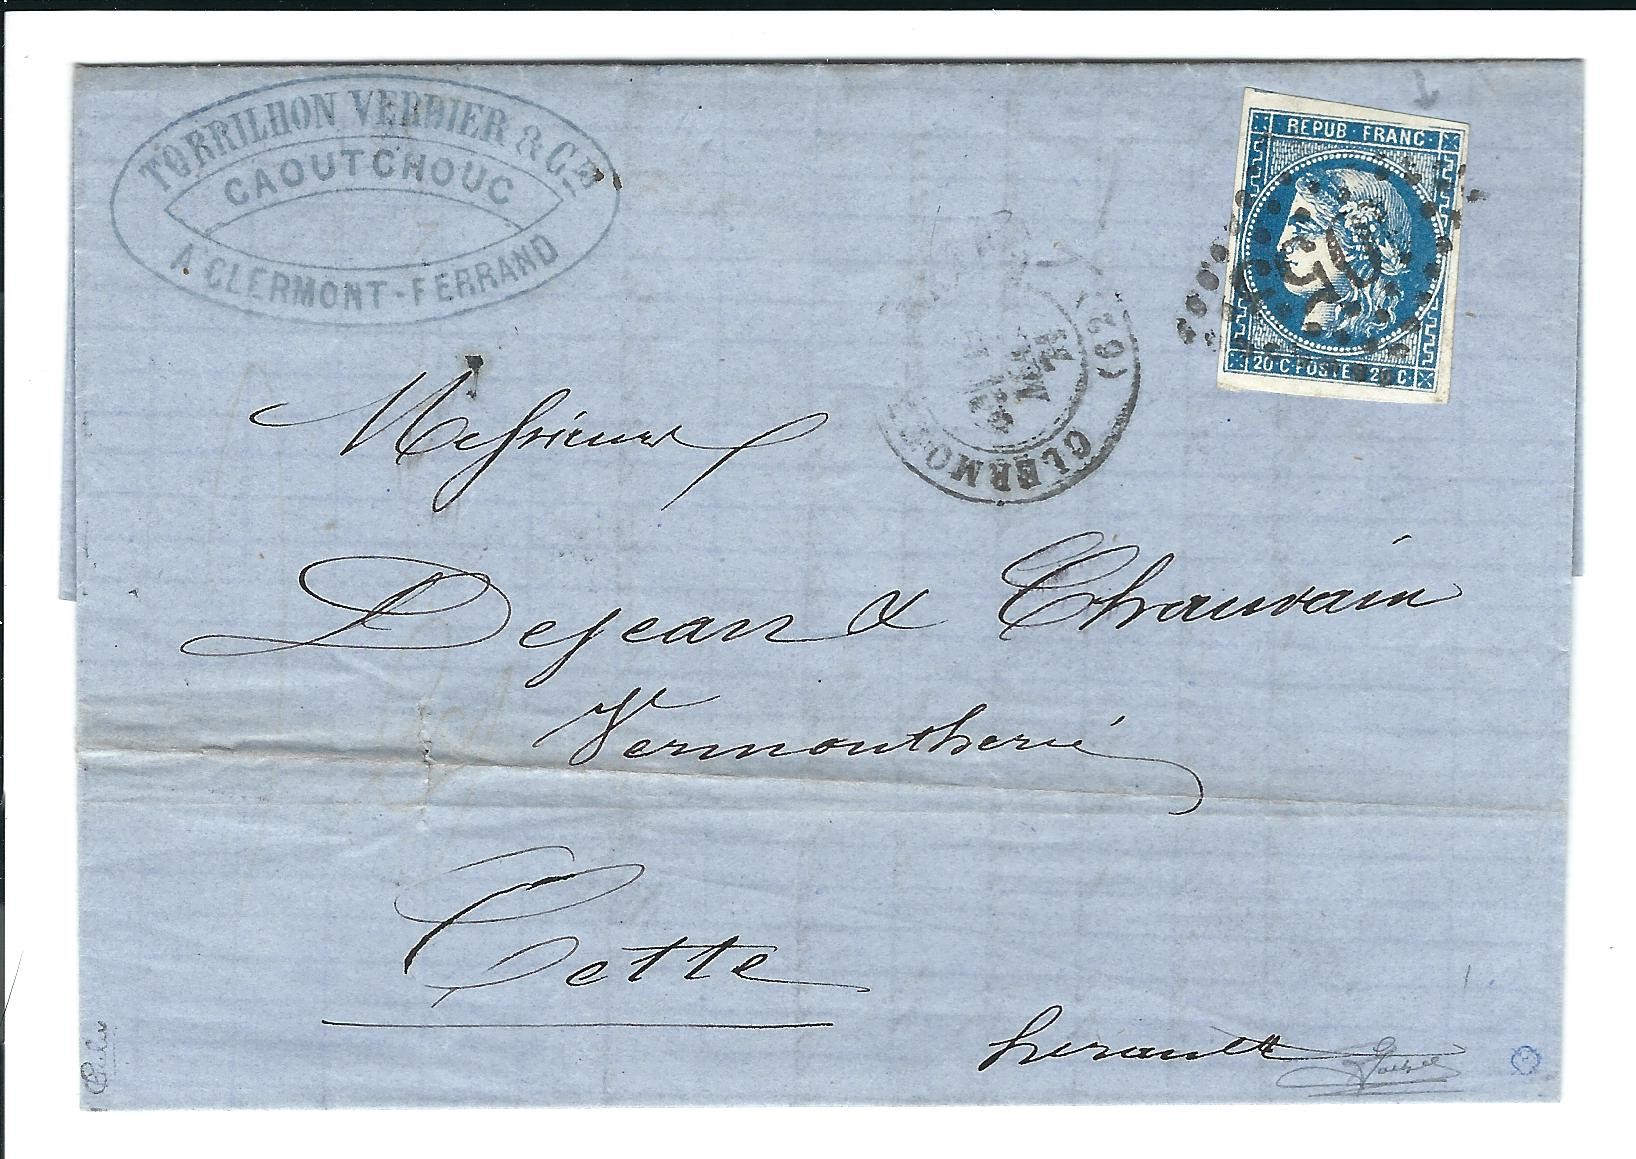 TORRILHON VERDIER & Cie
CAOUTCHOUC
A CLERMONT-FERRAND
REPUB·FRANC·
20 C POSTES 20 C
CLERMONT
(62)
71
Messieurs
Dejean & Chauvain
Vermoutherie
Cette
herault
Calves